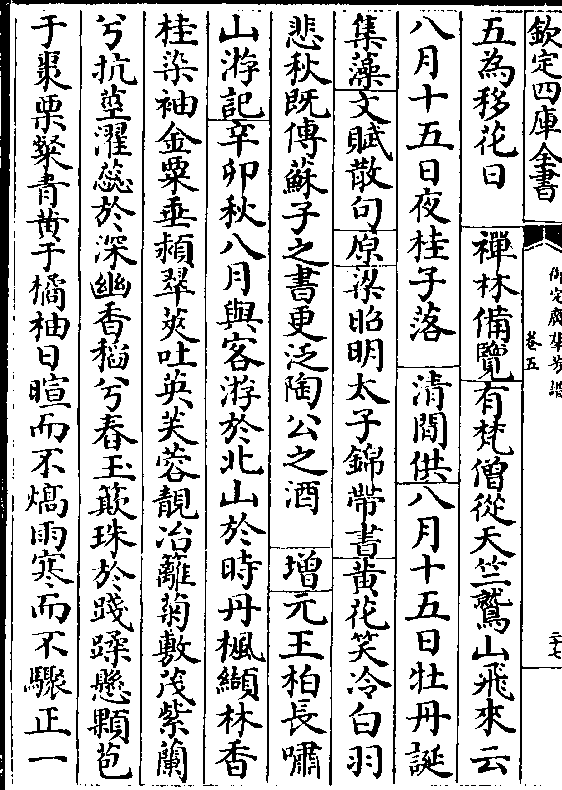 欽定四庫全書
御定廣羣芳譜
卷五
二十七
五為移花日 禪林備覽有梵僧從天竺鷲山飛來云
八月十五日夜桂子落 清閒供八月十五日牡丹誕
集藻文賦散句原梁昭明太子錦帶書黄花笑冷白羽
悲秋既傳蘇子之書更泛陶公之酒 増元王柏長嘯
山游記辛卯秋八月與客游於北山於時丹楓纈林香
桂染袖金粟垂頳翠莢吐英芙蓉靚冶籬菊敷茂紫蘭
兮抗莖濯蕊於深幽香稻兮舂玉簸珠於踐蹂懸顆苞
于棗栗粲青黄于橘柚日暄而不熇雨寒而不驟正一